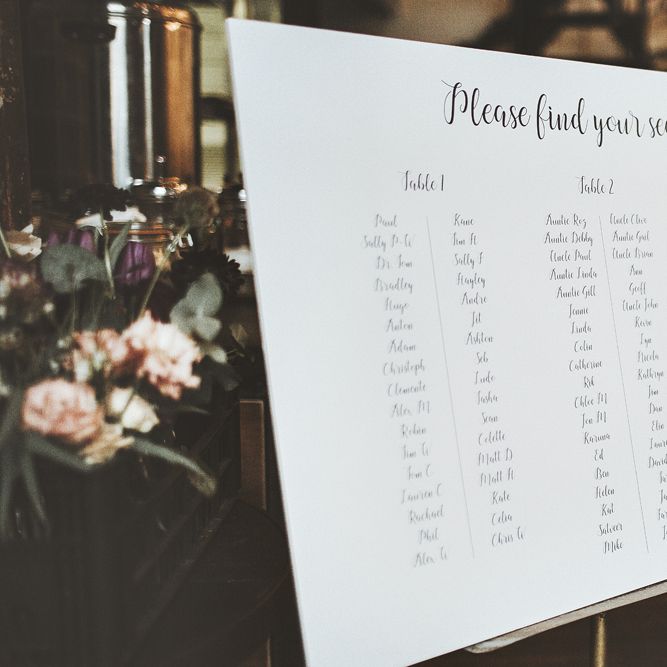 Please find your
Table 1
Paul
Sally P-W
Dr. Tom
Bradley
Hugo
Anton
Adam
Christoph
Clemente
Alex M
Robin
Tim W
Tom C
Lauren C
Rachael
Phil
Alex W
Kane
Tom H
Sally F
Hayley
Andre
Jit
Ashton
Seb
Jude
Tasha
Sean
Colette
Matt D
Matt H
Kate
Celia
Chris W
Table 2
Auntie Roz
Auntie Debby
Uncle Paul
Auntie Linda
Auntie Gill
Jonnie
Linda
Colin
Catherine
Rik
Chloe M
Jon M
Karuna
Ed
Ben
Helen
Kat
Satveer
Mike
Uncle Clive
Auntie Gail
Uncle Brian
Ann
Geoff
Uncle John
Kevin
Lyn
Nicola
Kathryn